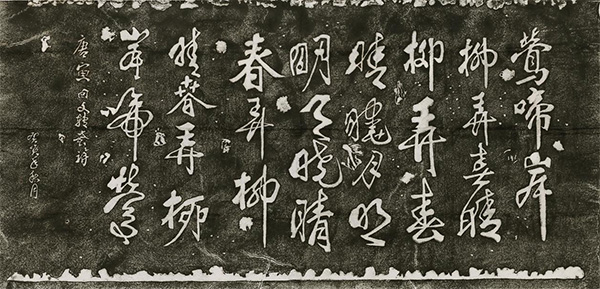 鶯啼岸
柳弄春晴
柳弄春
晴曉月明
明月曉晴
春弄柳
晴春弄柳
岸啼鶯
唐寅回文詩
月